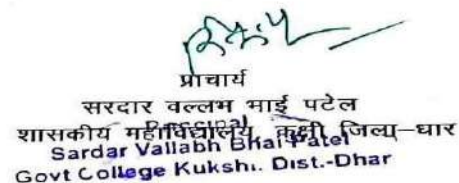 प्राचार्य
सरदार वल्लभ भाई पटेल
Principal
शासकीय महाविद्यालय, कुक्षी जिला-धार
Sardar Vallabh Bhai Patel
Govt College Kukshi. Dist.-Dhar